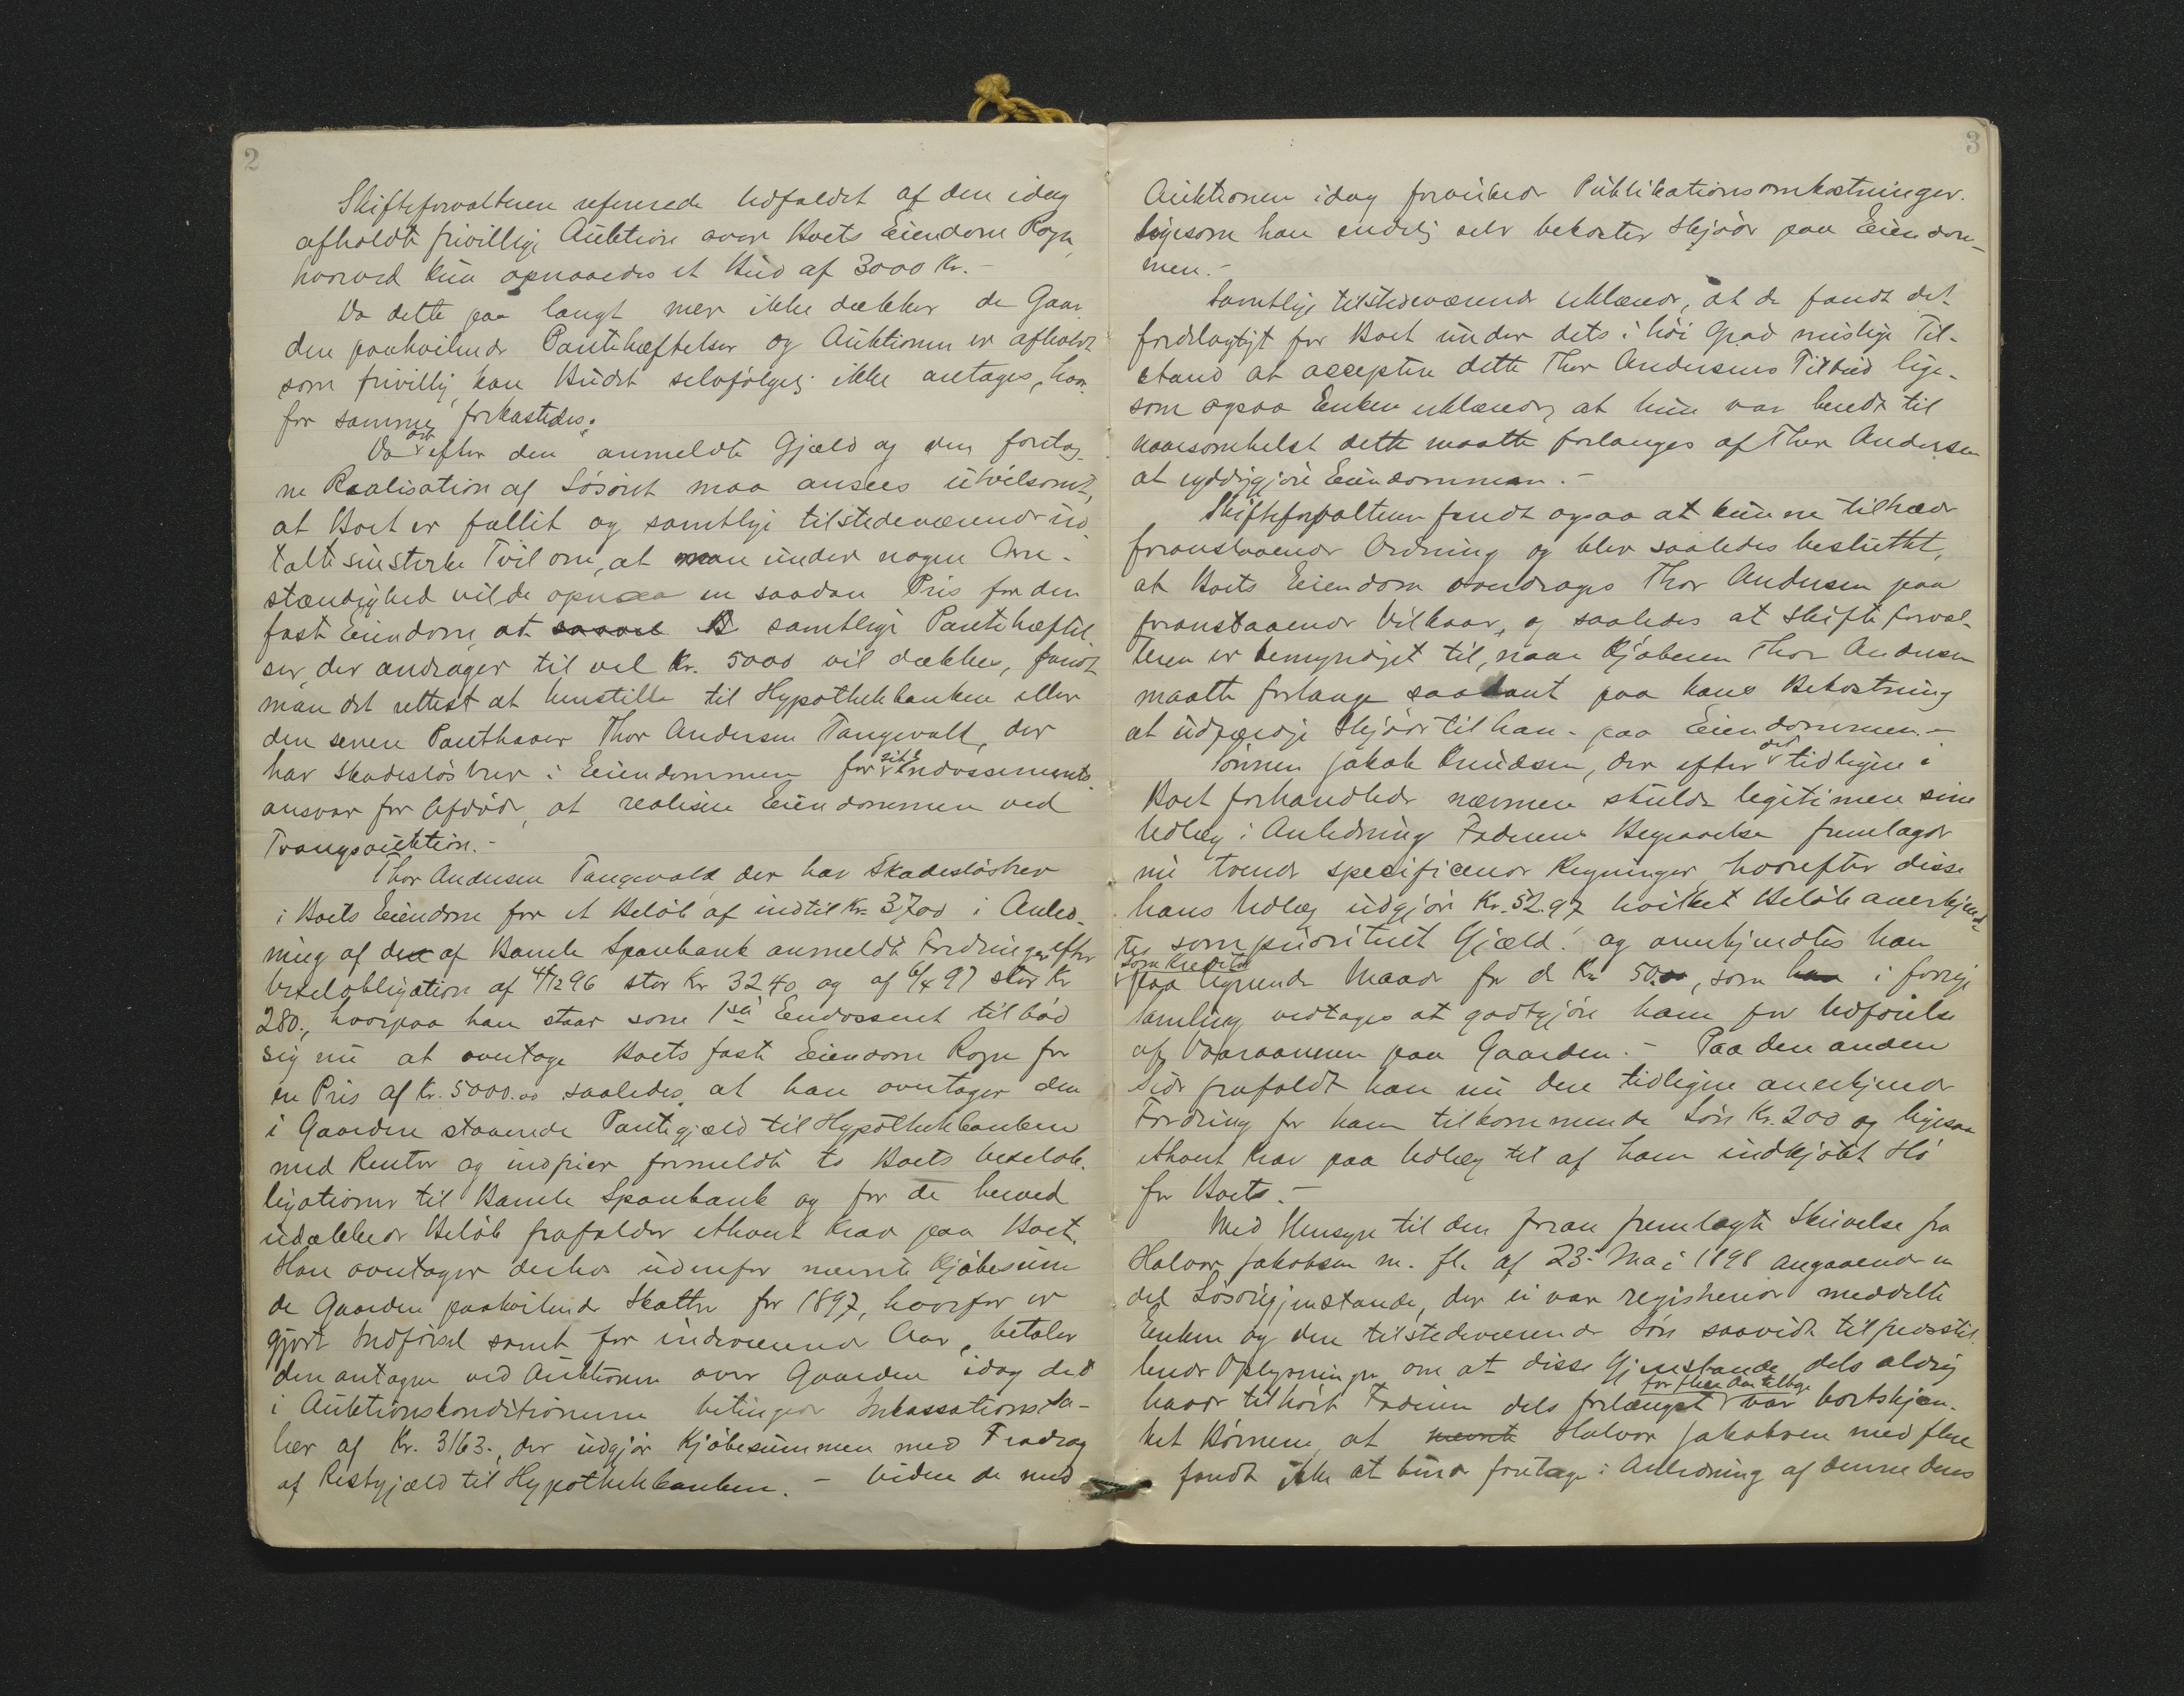 2
Skifteforvalteren refererede Udfaldet af den idag
afholdte frivillige Auktion over Boets Eiendom Rogn
hvorved kun opnaaedes et Bud af 3000 Kr. -
Da dette paa langt nær ikke dækker de Gaar-
den paahvilende Pantehæftelser og Auktionen er afholdt
som frivillig, kan Budet selvfølgelig ikke antages, hvor-
for samme forkastedes.
Da det efter den anmeldte Gjæld og den foretag-
ne Realisation af Løsøret maa ansees utvilsomt,
at Boet er fallit og samtlige tilstedeværende ud
talte sin sterke Tvil om, at man under nogen Om-
stændighed vilde opnaa en saadan Pris for den
faste Eiendom, at saavel B samtlige Pantehæftel
ser, der andrager til vel Kr. 5000 vil dækkes, fandt
man det rettest at henstille til Hypothekbanken eller
den senere Panthaver Thor Andersen Tangevald, der
har Skadesløsbrev i Eiendommen for sit Endossements
ansvar for Afdøde, at realisere Eiendommen ved
Tvangsauktion. -
Thor Andersen Tangevald, der har Skadesløsbrev
i Boets Eiendom for et Beløb af indtil Kr. 3700 i Anled-
ning af den af Bamle Sparebank anmeldte Fordringer efter
Vexelobligation af 4/12 96 stor Kr 3240 og af 6/4 97 stor Kr
280., hvorpaa han staar som 1ste Endossent tilbød
sig nu at overtage Boets faste Eiendom Rogn for
en Pris af Kr. 5000.00 saaledes, at han overtager den
i Gaarden staaende Pantegjæld til Hypothekbanken
med Renter og indfrier formeldte to Boets Vexelob-
ligationer til Bamle Sparebank og for de herved
udækkede Beløb frafalder ethvert Krav paa Boet.
Han overtager derhos udenfor nævnte Kjøbesum
de Gaarden paahvilende Skatter for 1897, hvorfor er
gjort Indførsel samt for indeværende Aar, betaler
den antagne ved Auktionen over Gaarden idag det
i Auktionskonditionerne betingede Inkassationssa-
lær af Kr. 3163., der udgjør Kjøbesummen med Fradrag
af Restgjæld til Hypothekbanken. - Videre de med
3
Auktionen idag forbundne Publikationsomkostninger.
Ligesom han endelig selv bekoster Skjøde paa Eiendom-
men. -
Samtlige tilstedeværende erklærede, at de fandt det
fordelagtigt for Boet under dets i høi Grad mislige Til-
stand at acceptere dette Thor Andersens Tilbud lige-
som ogsaa Enken erklærede, at hun var beredt til
naarsomhelst dette maatte forlanges af Thor Andersen
at ryddiggjøre Eiendommen. -
Skifteforvalteren fandt ogsaa at kunne tiltræde
foranstaaende Ordning og blev saaledes besluttet,
at Boets Eiendom overdrages Thor Andersen paa
foranstaaende Vilkaar, og saaledes at Skifteforval-
teren er bemyndiget til, naar Kjøberen Thor Andersen
maatte forlange saadant paa hans Bekostning
at udfærdige Skjøde til ham paa Eiendommen. -
Sønnen Jakob Knudsen, der efter det tidligere i
Boet forhandlede nærmere skulde legitimere sine
Udlæg i Anledning Faderens Begravelse fremlagde
nu tvende specificerede Regninger hvorefter disse
hans Udlæg udgjør Kr. 52.97 hvilket Beløb anerkjend-
tes som prioriteret Gjæld. og anerkjendtes han
som Kreditor
paa lignende Maade for de Kr 50.00, som han i forrige
Samling vedtages at godtgjøre ham for Udførelse
af Vaaraannen paa Gaarden. - Paa den anden
Side frafaldt han nu den tidligere anerkjendte
Fordring for ham tilkommende Løn Kr. 200 og ligesaa
ethvert Krav paa Udlæg til af ham indkjøbt Hø
for Boet. -
Med Hensyn til den foran fremlagte Skrivelse fra
Halvor Jakobsen m. fl. af 23de Mai 1898 angaaende en
del Løsøregjenstande, der ei var registreret meddelte
Enken og den tilstedeværende Søn saavidt tilfredsstil
lende Oplysninger om at disse Gjenstande dels aldrig
havde tilhørt Faderen dels forlængst for flere Aar tilbage var bortskjæn-
ket Børnene, at nævnte Halvor Jakobsen med flere
fandt ikke at burde foretage i Anledning af denne deres